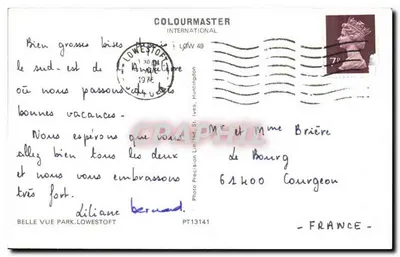 COLOURMASTER
INTERNATIONAL
LOWESTOFT
LOW 49
7P
Bien grosses bises depuis
le sud-est de l'Angleterre
où nous passons de très
bonnes vacances.
Nous espérons que vous
allez bien tous les deux
et nous vous embrassons
très fort.
Liliane bernard
BELLE VUE PARK, LOWESTOFT
PT13141
Photo Precision Limited, St. Ives, Huntingdon
Mr et Mme Brière
Le Bourg
61400 Courgeon
- FRANCE -